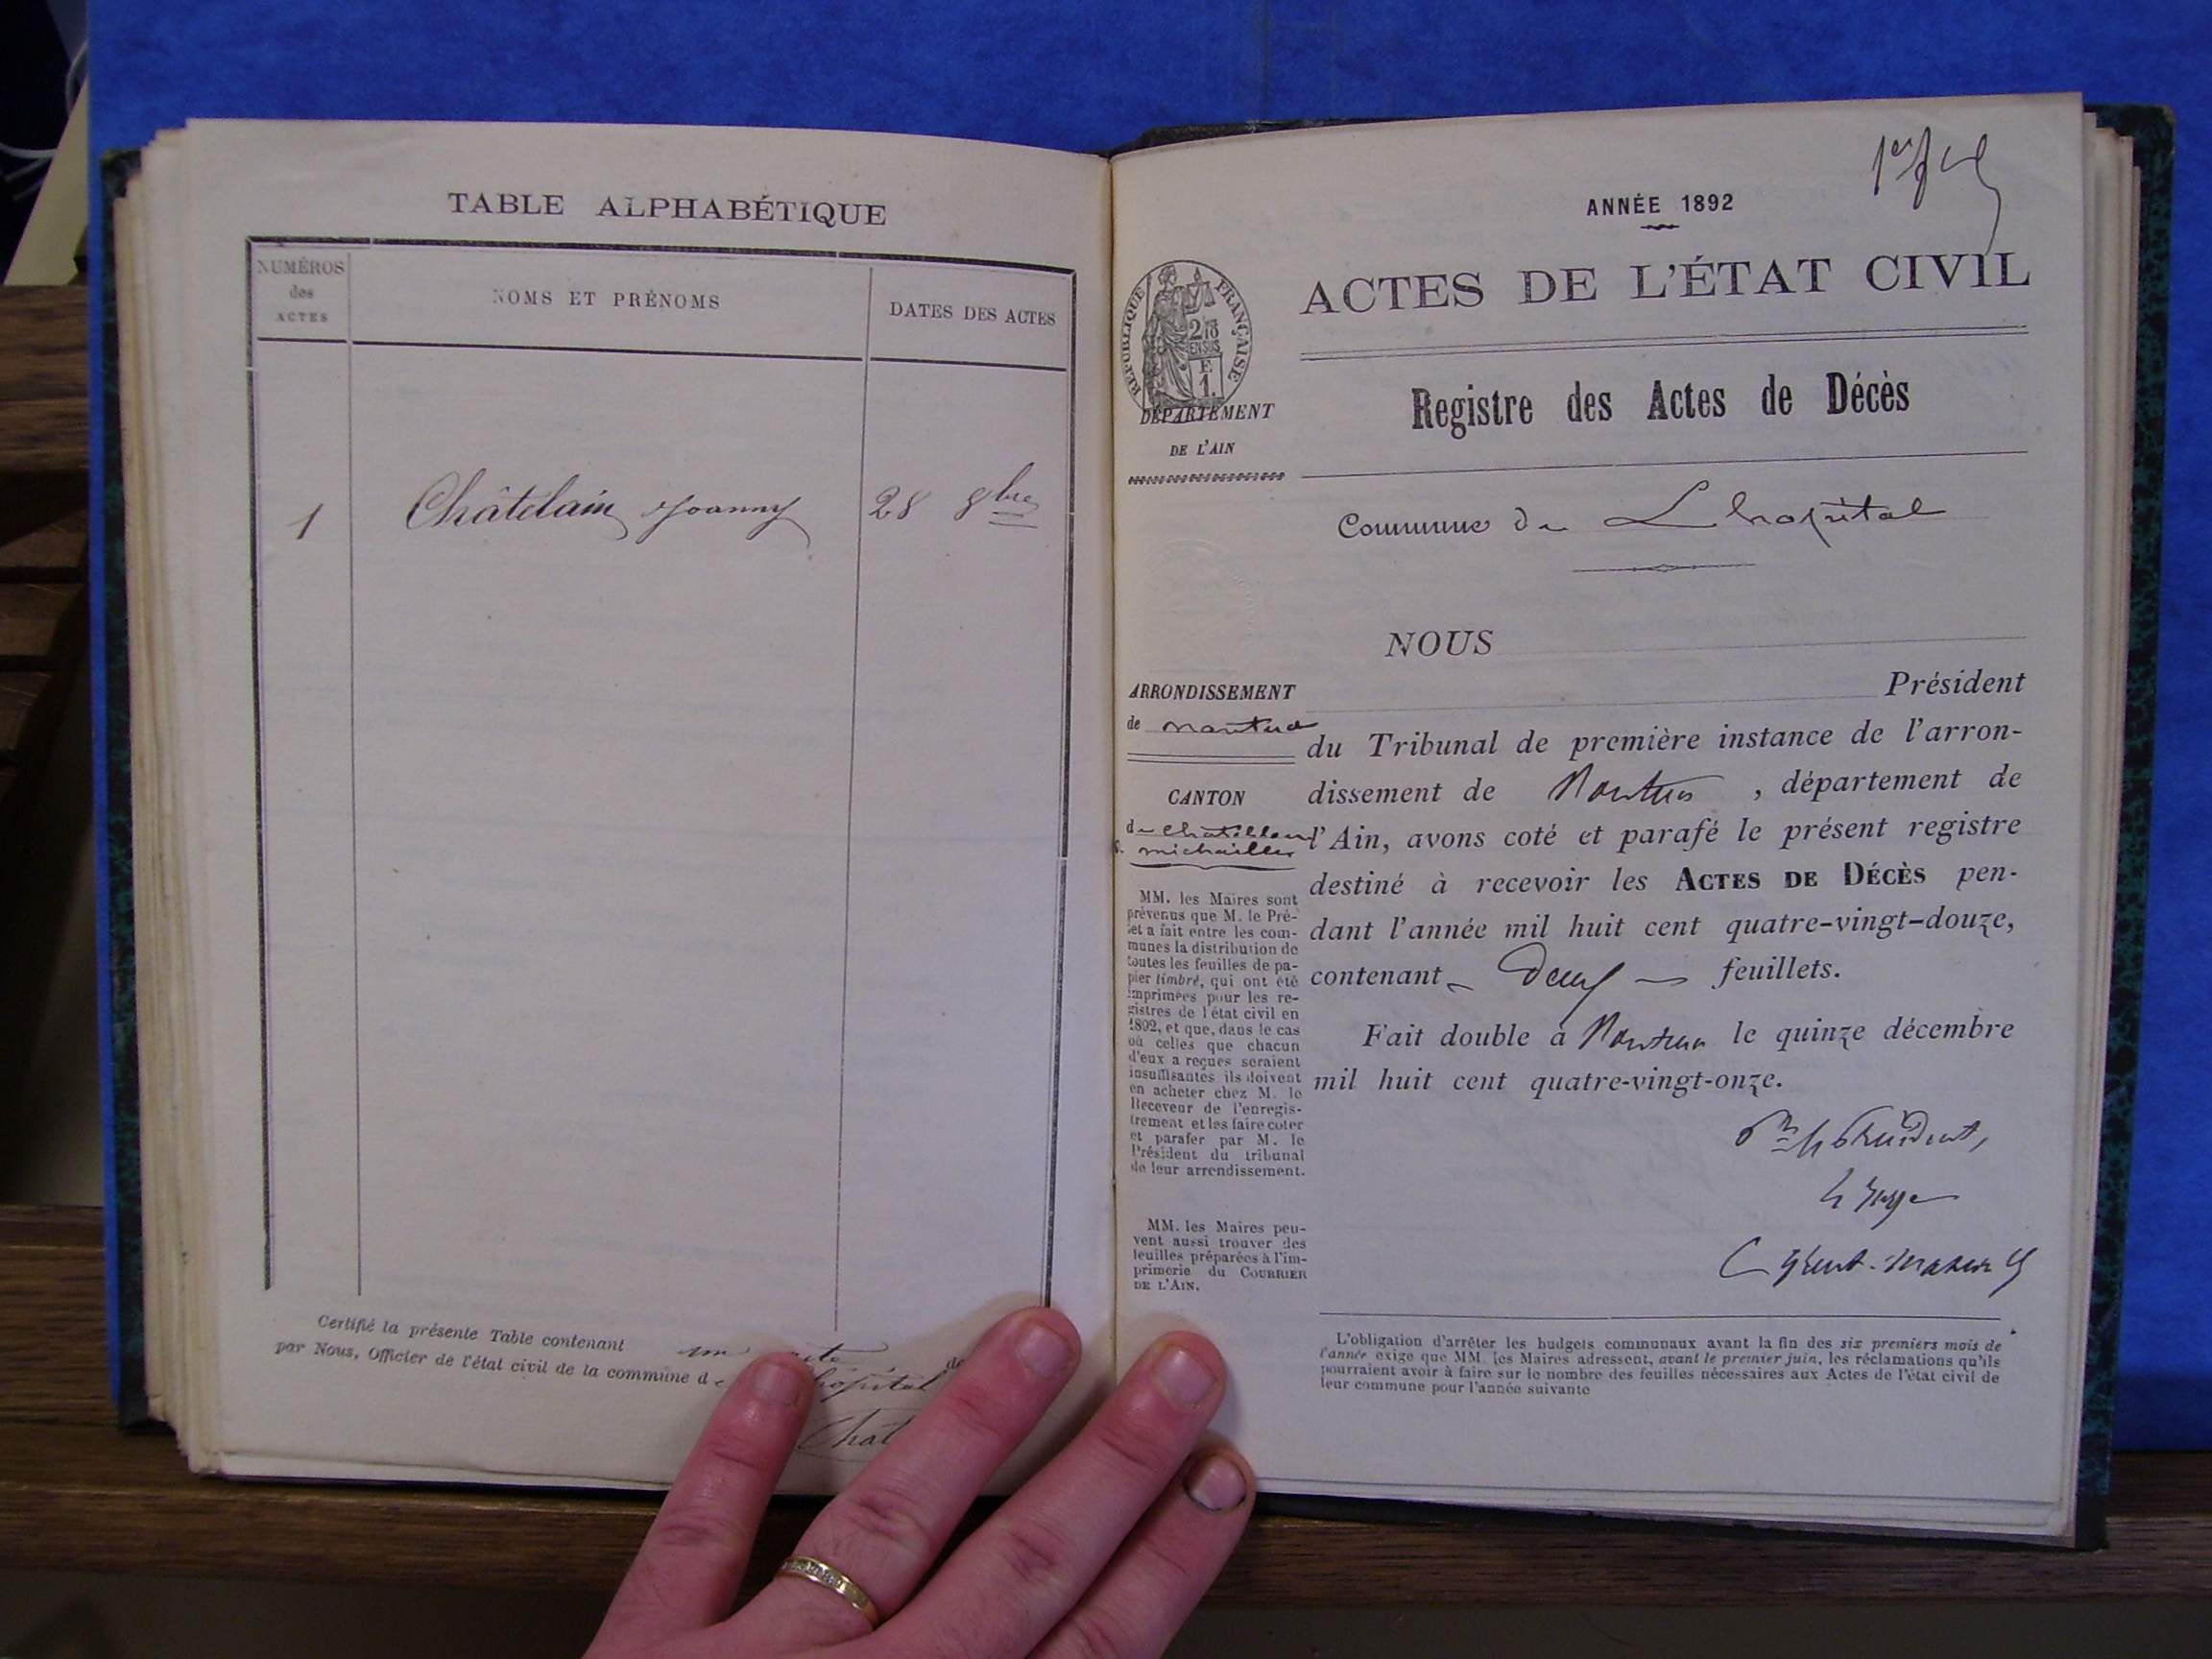 TABLE ALPHABÉTIQUE
NUMÉROS
des
ACTES
NOMS ET PRÉNOMS
DATES DES ACTES
1 Châtelain Joanny 28 8bre
Certifié la présente Table contenant un
par Nous, Officier de l'état civil de la commune de hôpital
Chat
1er
ANNÉE 1892
ACTES DE L'ÉTAT CIVIL
RÉPUBLIQUE FRANÇAISE
DÉPARTEMENT
DE L'AIN
Registre des Actes de Décès
Commune de Lhopital
NOUS
Président
du Tribunal de première instance de l'arron-
dissement de Nantua , département de
l'Ain, avons coté et parafé le présent registre
destiné à recevoir les ACTES DE DÉCÈS pen-
dant l'année mil huit cent quatre-vingt-douze,
contenant deux feuillets.
Fait double à Nantua le quinze décembre
mil huit cent quatre-vingt-onze.
Pr le Président,
le Juge
ARRONDISSEMENT
de nantua
CANTON
de chatillon
michaille
MM. les Maires sont
prévenus que M. le Pré-
fet a fait entre les com-
munes la distribution de
toutes les feuilles de pa-
pier timbré, qui ont été
imprimées pour les re-
gistres de l'état civil en
1892, et que, dans le cas
où celles que chacun
d'eux a reçues seraient
insuffisantes ils doivent
en acheter chez M. le
Receveur de l'enregis-
trement et les faire coter
et parafer par M. le
Président du tribunal
de leur arrondissement.
MM. les Maires peu-
vent aussi trouver des
feuilles préparées à l'im-
primerie du COURRIER
DE L'AIN.
L'obligation d'arrêter les budgets communaux avant la fin des six premiers mois de
l'année exige que MM. les Maires adressent, avant le premier juin, les réclamations qu'ils
pourraient avoir à faire sur le nombre des feuilles nécessaires aux Actes de l'état civil de
leur commune pour l'année suivante